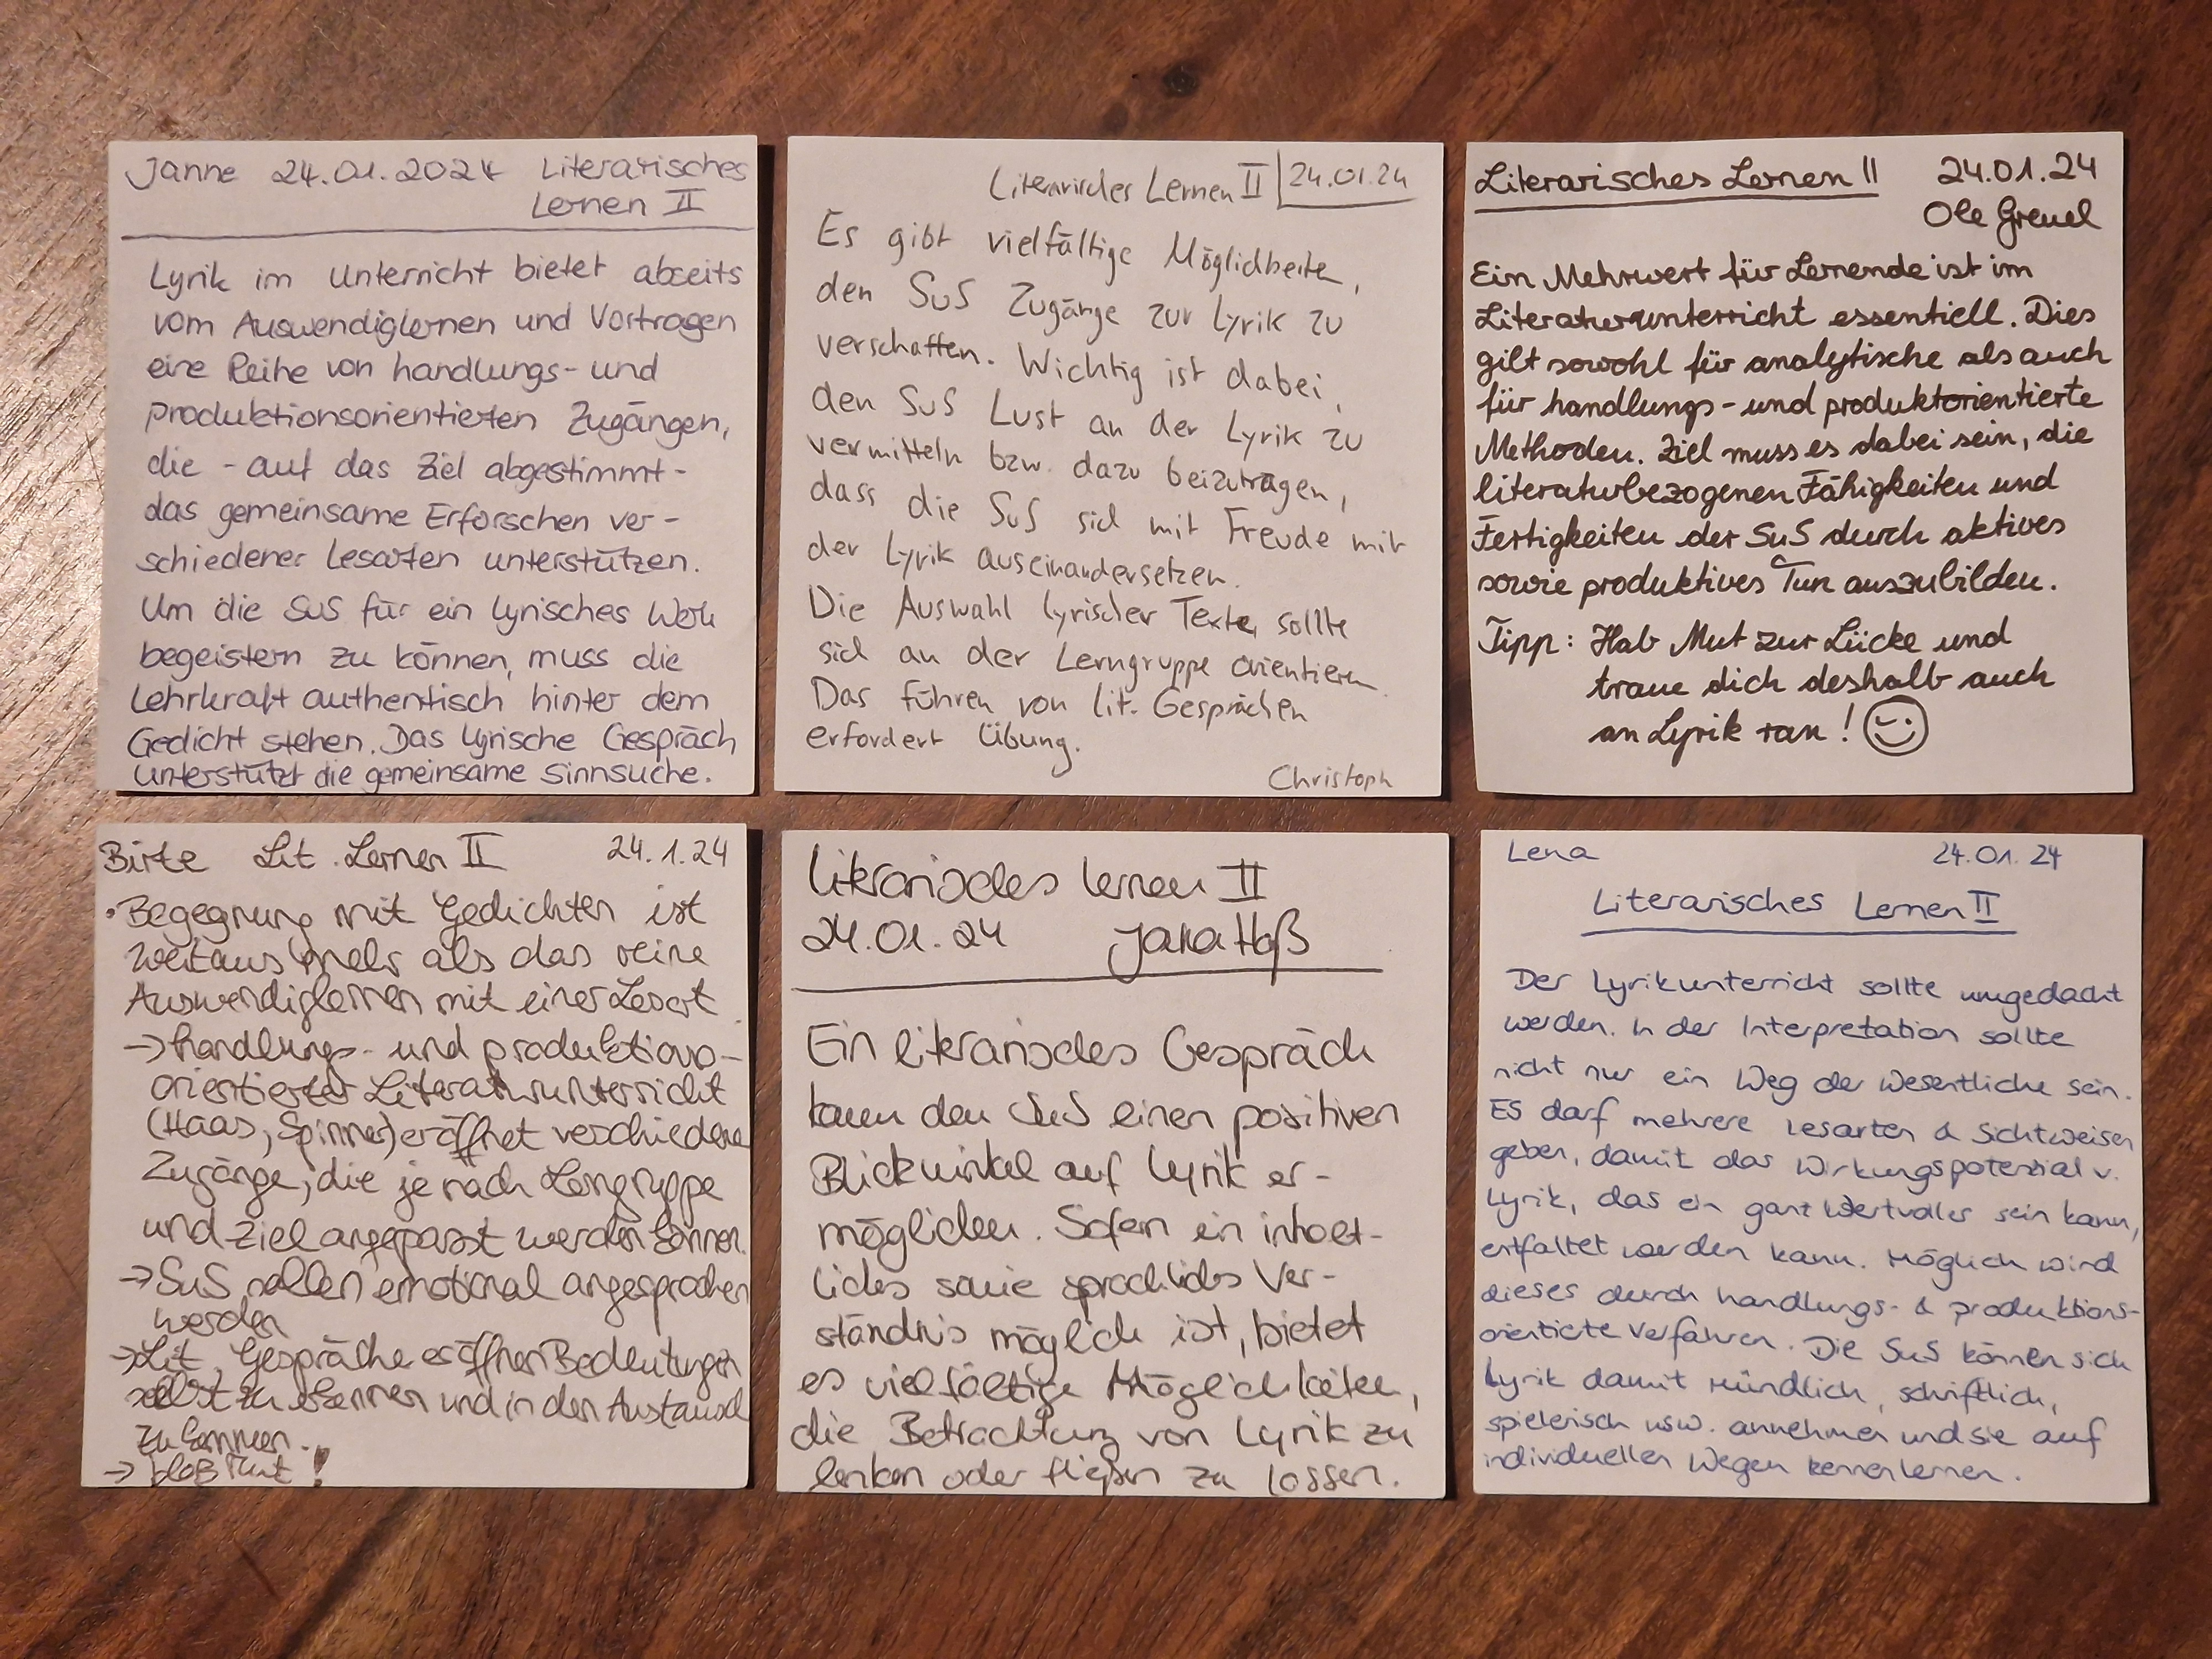 Janne 24.01.2024 Literarisches
Lernen II
Lyrik im Unterricht bietet abseits
vom Auswendiglernen und Vortragen
eine Reihe von handlungs- und
produktionsorientierten Zugängen,
die - auf das Ziel abgestimmt -
das gemeinsame Erforschen ver-
schiedener Lesarten unterstützen.
Um die SuS für ein lyrisches Werk
begeistern zu können, muss die
Lehrkraft authentisch hinter dem
Gedicht stehen. Das lyrische Gespräch
unterstützt die gemeinsame Sinnsuche.
Literarisches Lernen II 24.01.24
Es gibt vielfältige Möglichkeiten,
den SuS Zugänge zur Lyrik zu
verschaffen. Wichtig ist dabei,
den SuS Lust an der Lyrik zu
vermitteln bzw. dazu beizutragen,
dass die SuS sich mit Freude mit
der Lyrik auseinandersetzen.
Die Auswahl lyrischer Texte sollte
sich an der Lerngruppe orientieren.
Das Führen von lit. Gesprächen
erfordert Übung.
Christoph
Literarisches Lernen II 24.01.24
Ole Greuel
Ein Mehrwert für Lernende ist im
Literaturunterricht essentiell. Dies
gilt sowohl für analytische als auch
für handlungs- und produktorientierte
Methoden. Ziel muss es dabei sein, die
literaturbezogenen Fähigkeiten und
Fertigkeiten der SuS durch aktives
sowie produktives Tun auszubilden.
Tipp: Hab Mut zur Lücke und
traue dich deshalb auch
an Lyrik ran!
Birte Lit. Lernen II 24.1.24
• Begegnung mit Gedichten ist
weitaus mehr als das reine
Auswendiglernen mit einer Lesart.
→ handlungs- und produktions-
orientierter Literaturunterricht
(Haas, Spinner) eröffnet verschiedene
Zugänge, die je nach Lerngruppe
und Ziel angepasst werden können.
→ SuS sollen emotional angesprochen
werden
→ Lit. Gespräche eröffnen Bedeutungen
selbst zu erkennen und in den Austausch
zu kommen.
→ bloß Mut!
Literarisches Lernen II
24.01.24 Jana Hoß
Ein literarisches Gespräch
kann den SuS einen positiven
Blickwinkel auf Lyrik er-
möglichen. Sofern ein inhalt-
liches sowie sprachliches Ver-
ständnis möglich ist, bietet
es vielfältige Möglichkeiten,
die Betrachtung von Lyrik zu
lenken oder fließen zu lassen.
Lena 24.01.24
Literarisches Lernen II
Der Lyrikunterricht sollte umgedacht
werden. In der Interpretation sollte
nicht nur ein Weg der Wesentliche sein.
Es darf mehrere Lesarten & Sichtweisen
geben, damit das Wirkungspotenzial v.
Lyrik, das ein ganz wertvolles sein kann,
entfaltet werden kann. Möglich wird
dieses durch handlungs- & produktions-
orientierte Verfahren. Die SuS können sich
Lyrik damit mündlich, schriftlich,
spielerisch usw. annehmen und sie auf
individuellen Wegen kennenlernen.